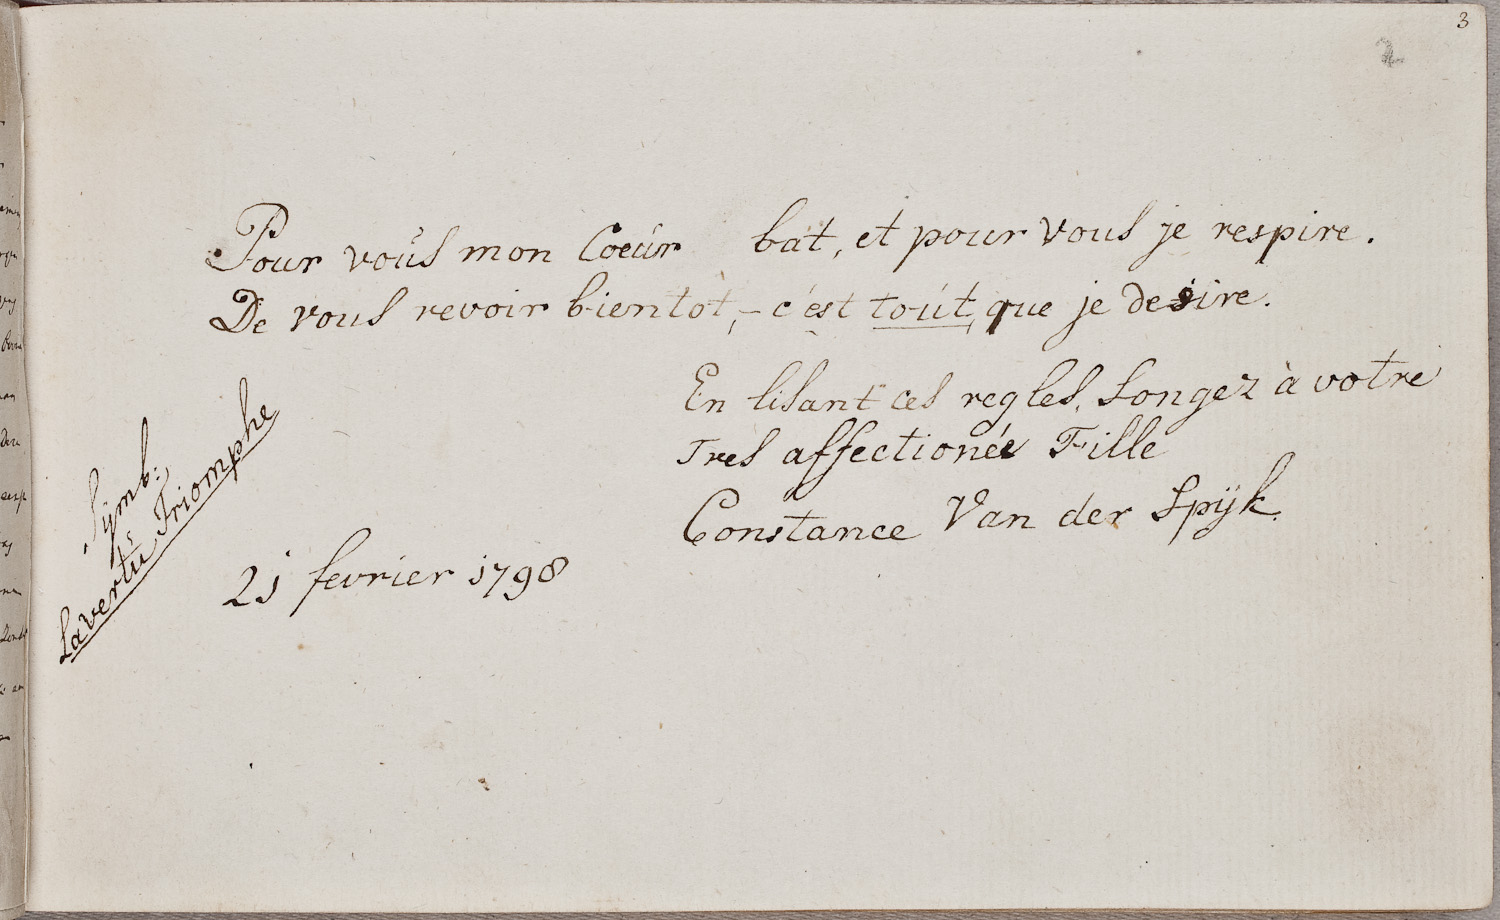 3
2
Pour vous mon Coeur bat, et pour vous je respire.
De vous revoir bientot, - c'est tout, que je desire.
En lisant ces regles, songez à votre
Tres affectionée Fille
Constance Van der Spÿk.
Sÿmb:
La vertu Triomphe
21 fevrier 1798